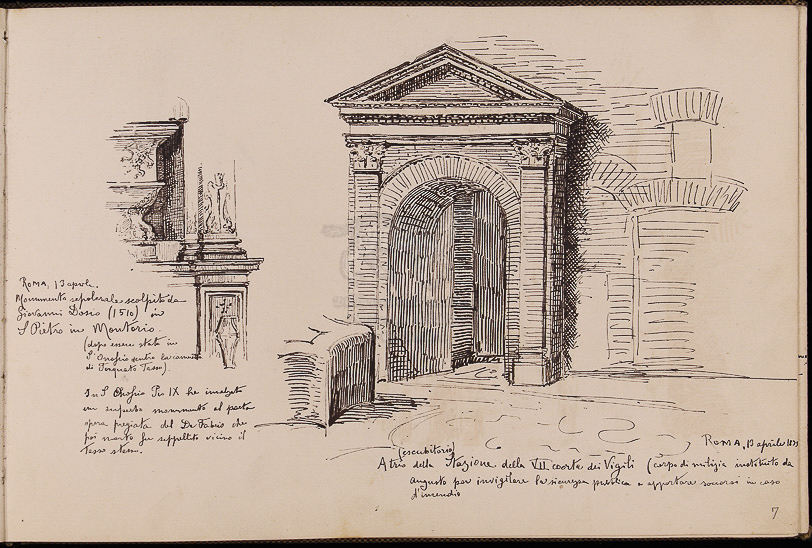 ROMA, 13 aprile.
Monumento sepolcrale scolpito da
Giovanni Dosio (1510) in
S. Pietro in Montorio.
(dopo essere stati in
S. Onofrio sentii la
di Torquato Tasso).
In S. Onofrio Pio IX ha innalzato
un superbo monumento al poeta
opera pregiata del De Fabris che
poi morto fu seppellito vicino il
Tasso stesso.
ROMA, 13 aprile
(escubitorio)
Atrio della Stazione della VII coorte dei Vigili (corpo di milizia instituito da
Augusto per invigilare la sicurezza pubblica e apportare soccorsi in caso
d'incendio
7